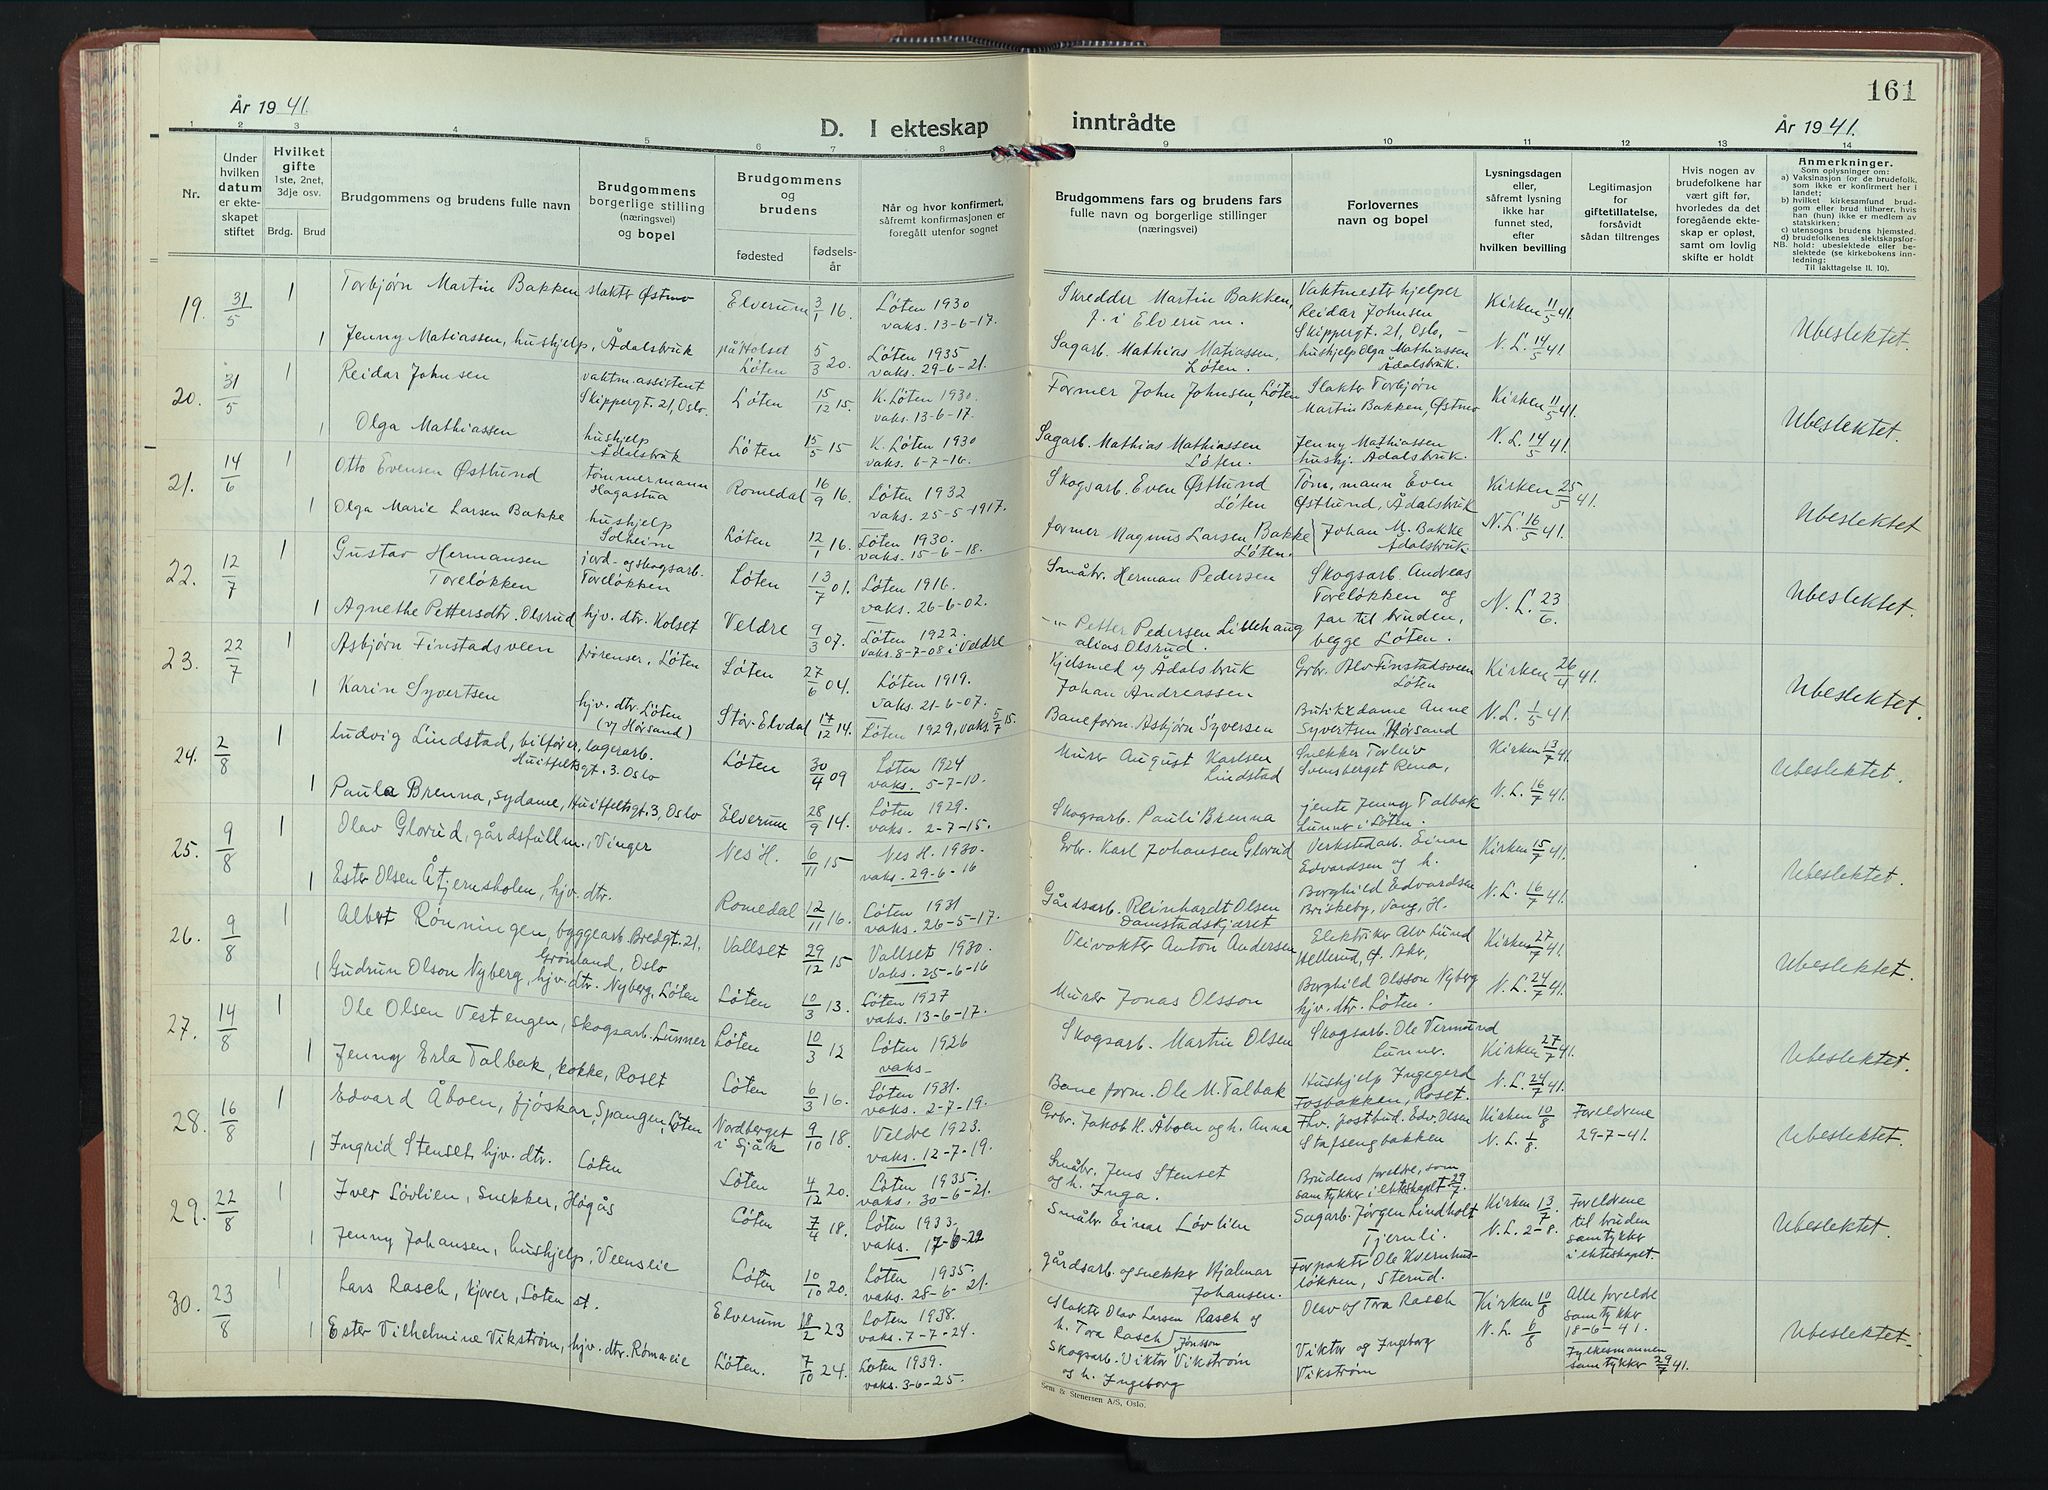 161
År 1941.
D. I ekteskap inntrådte
År 1941.
1 2 3 4 5 6 7 8 9 10 11 12 13 14
Nr.
Under hvilken datum er ekteskapet stiftet
Hvilket gifte 1ste, 2net, 3dje osv.
Brdg. Brud
Brudgommens og brudens fulle navn
Brudgommens borgerlige stilling (næringsvei) og bopel
Brudgommens og brudens
fødested
fødselsår
Når og hvor konfirmert, såfremt konfirmasjonen er foregått utenfor sognet
Brudgommens fars og brudens fars fulle navn og borgerlige stillinger (næringsvei)
Forlovernes navn og bopel
Lysningsdagen eller, såfremt lysning ikke har funnet sted, efter hvilken bevilling
Legitimasjon for giftetillatelse, forsåvidt sådan tiltrenges
Hvis nogen av brudefolkene har vært gift før, hvorledes da det foregående ekteskap er opløst, samt om lovlig skifte er holdt
Anmerkninger.
Som oplysninger om:
a) Vaksinasjon for de brudefolk, som ikke er konfirmert her i landet;
b) hvilket kirkesamfund brudgom eller brud tilhører, hvis han (hun) ikke er medlem av statskirken;
c) utensogns brudens hjemsted.
d) brudefolkenes slektskapsforhold: ubeslektede eller beslektede (se kirkebokens innledning;
NB. Til iakttagelse II. 10).
19. 31/5 1 Torbjørn Martin Bakken slakter Østmo Elverum 3/1 16. Løten 1930 vaks. 13-6-17. Skredder Martin Bakken, f. i Elverum. Vaktmesterhjelper Reidar Johnsen Skippergt. 21, Oslo, - Kirken 11/5 41.
1 Jenny Matiassen, hushjelp, Ådalsbruk på Holset Løten 5/3 20. Løten 1935 vaks. 29-6-21. Sagarb. Mathias Matiassen, Løten. hushjelp Olga Mathiassen Ådalsbruk. N. L. 14/5 41. Ubeslektet.
20. 31/5 1 Reidar Johnsen vaktm. assistent Skippergt. 21, Oslo. Løten 15/12 15. K. Løten 1930. vaks. 13-6-17. Former John Johnsen, Løten Slakter Torbjørn Martin Bakken, Østmo Kirken 11/5 41.
1 Olga Mathiassen hushjelp Ådalsbruk Løten 15/5 15 K. Løten 1930 vaks. 6-7-16. Sagarb. Mathias Mathiassen Løten. Jenny Mathiassen hushj. Ådalsbruk. N. L. 14/5 41. Ubeslektet.
21. 14/6 1 Otto Evensen Østlund tømmermann Hagastua Romedal 16/9 16. Løten 1932 vaks. 25-5-1917. Skogsarb. Even Østlund Løten Tøm.mann Even Østlund, Ådalsbruk Kirken 25/5 41.
1 Olga Marie Larsen Bakke hushjelp Solheim Løten 12/1 16. Løten 1930. vaks. 15-6-18. former Magnus Larsen Bakke Løten. Johan M. Bakke Ådalsbruk N. L. 16/5 41. Ubeslektet
22. 12/7 1 Gustav Hermansen Toreløkken jord- og skogsarb. Toreløkken Løten 13/7 01. Løten 1916. vaks. 26-6-02. Småbr. Herman Pedersen Skogsarb. Andreas Toreløkken og N. L. 23/6.
1 Agnethe Pettersdtr. Olsrud hjv. dtr. Holset Veldre 9/3 07. Løten 1922. vaks. 8-7-08 i Veldre -"- Petter Pedersen Lillehaug alias Olsrud. far til bruden, begge Løten. Ubeslektet.
23. 22/7 1 Asbjørn Finstadsveen frørenser, Løten Løten 27/6 04. Løten 1919. vaks. 21-6-07. Kjelsmed v/ Ådalsbruk Johan Andreassen Grbr. Alv Finstadsveen Løten Kirken 26/4 41.
1 Karin Syvertsen hjv. dtr. Løten (v/ Hørsand) Stor-Elvdal 17/12 14. Løten 1929, vaks. 5/7 15. Baneform. Asbjørn Syversen Butikkdame Anne Syvertsen, Hørsand N. L. 1/5 41. Ubeslektet.
24. 2/8 1 Ludvig Lindstad, bilfører, lagerarb. Huitfeltsgt. 3. Oslo Løten 30/4 09 Løten 1924 vaks. 5-7-10. Murer August Karlsen Lindstad Snekker Torleiv Svensberget Rena, Kirken 13/7 41.
1 Paula Brenna, sydame, Huitfeltsgt. 3, Oslo Elverum 28/9 14. Løten 1929. vaks. 2-7-15. Skogsarb. Pauli Brenna jente Jenny Talbak Lunner i Løten. N. L. 16/7 41. Ubeslektet.
25. 9/8 1 Olav Glorud, gårdsfullm., Vinger Nes H. 6/11 15 Nes H. 1930. vaks. 29-6-16 Grbr. Karl Johansen Glorud Verkstedarb. Einar Edvardsen og h. Kirken 15/7 41.
1 Ester Olsen Åtjernsholen, hjv. dtr. Romedal 12/11 16. Løten 1931 vaks. 26-5-17. Gårdsarb. Reinhardt Olsen Damstadskjæret Borghild Edvardsen Briskeby, Vang, H. N. L. 16/7 41. Ubeslektet.
26. 9/8 1 Albert Rønningen, byggearb. Bredgt. 21, Grønland, Oslo Vallset 29/12 15 Vallset 1930. Vaks. 25-6-16 Veivokter Anton Andersen Elektriker Alv Lund Hellerud, Ø. Aker, Kirken 27/7 41.
1 Gudrun Olson Nyberg, hjv. dtr. Nyberg, Løten Løten 10/3 13. Løten 1927 vaks. 13-6-17. Murer Jonas Olsson Borghild Olsson Nyberg hjv. dtr. Løten. N. L. 24/7 41. Ubeslektet.
27. 14/8 1 Ole Olsen Vestengen, skogsarb. Lunner Løten 10/3 12 Løten 1926 vaks- Skogsarb. Martin Olsen Skogsarb. Ole Vermund Lunner. Kirken 27/7 41.
1 Jenny Erla Talbak, kokke, Roset Løten 6/3 16. Løten 1931. vaks. 2-7-19. Baneform. Ole M. Talbak Hushjelp Ingegerd Fosbakken, Roset. N. L. 24/7 41. Ubeslektet.
28. 16/8 1 Edvard Åboen, fjøskar, Spangen, Løten Nordberget i Sjåk 9/10 18. Veldre 1923. vaks. 12-7-19. Grbr. Jakob H. Åboen og h. Anna Fhv. postbud. Edv. Olsen Stafsengbakken Kirken 10/8 N. L. 1/8. Foreldrene 29-7-41.
1 Ingrid Stenset, hjv. dtr. Løten Løten 4/12 20. Løten 1935. vaks. 30-6-21. Småbr. Jens Stenset og h. Inga. Brudens foreldre, som samtykker i ekteskapet 29/7. Ubeslektet.
29. 22/8 1 Iver Løvlien, snekker, Høgås Løten 7/4 18. Løten 1933. vaks. 17-6-22 Småbr. Einar Løvlien Sagarb. Jørgen Lindholt Tjernli. Kirken 13/7. N. L. 2-8. Foreldrene til bruden samtykker i ekteskapet.
1 Jenny Johansen, hushjelp, Veenseie Løten 10/10 20. Løten 1935. vaks. 28-6-21. gårdsarb. og snekker Hjalmar Johansen. Forpakter Ole Kvernhusløkken, Sterud. Ubeslektet
30. 23/8 1 Lars Rasch, kjører, Løten st. Elverum 18/2 23 Løten 1938. vaks. 7-7-24. Slakter Olav Larsen Rasch og h. Tora Rasch f. Jonsson Olav og Tora Rasch Kirken 10/8 N. L. 6/8 Alle foreldre samtykker 18-6-41.
1 Ester Vilhelmine Vikstrøm, hjv. dtr. Rømaeie Løten. 7/10 24. Løten 1939. vaks. 3-6-25. Skogsarb. Viktor Vikstrøm og h. Ingeborg Viktor og Ingeborg Vikstrøm Fylkesmannen samtykker 29/7 41. Ubeslektet-
Sem & Stenersen A/S, Oslo.